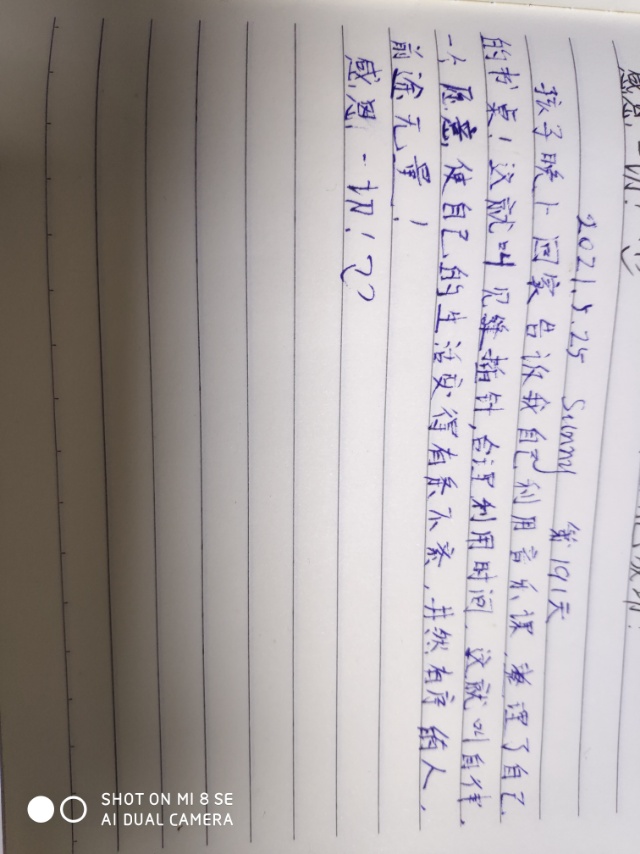 感恩一切!
2021.5.25 Sunny 第191天
孩子晚上回家告诉我自己利用音乐课,整理了自己
的书桌!这就叫见缝插针,合理利用时间.这就叫自律.
一个愿意使自己的生活变得有条不紊,井然有序的人,
前途无量!
感恩一切!
SHOT ON MI 8 SE
AI DUAL CAMERA